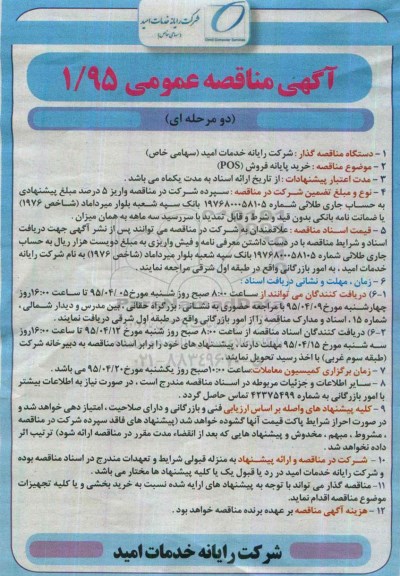 شرکت رایانه خدمات امید
(سهامی خاص)
آگهی مناقصه عمومی ۱/۹۵
(دو مرحله ای)
۱ - دستگاه مناقصه گذار : شرکت رایانه خدمات امید (سهامی خاص)
۲ - موضوع مناقصه : خرید پایانه فروش (POS)
۳ - مدت اعتبار پیشنهادات : از تاریخ ارائه اسناد به مدت یکماه می باشد .
۴ - نوع و مبلغ تضمین شرکت در مناقصه : سپرده شرکت در مناقصه واریز ۵ درصد مبلغ پیشنهادی
به حساب جاری طلائی شماره ۱۹۷۶۸۰۰۰۵۸۱۰۵ بانک سپه شعبه بلوار میرداماد (شاخص ۱۹۷۶)
یا ضمانت نامه بانکی بدون قید و شرط و قابل تمدید با سررسید سه ماهه به همان میزان .
۵ - قیمت اسناد مناقصه : علاقمندان به شرکت در مناقصه می توانند پس از نشر آگهی جهت دریافت
اسناد و شرایط مناقصه با در دست داشتن معرفی نامه و فیش واریزی به مبلغ دویست هزار ریال به حساب
جاری طلائی شماره ۱۹۷۶۸۰۰۰۵۸۱۰۵ بانک سپه شعبه بلوار میرداماد (شاخص ۱۹۷۶) به نام شرکت رایانه
خدمات امید ، به امور بازرگانی واقع در طبقه اول شرقی مراجعه نمایند .
۶ - زمان ، مهلت و نشانی دریافت اسناد :
۶-۱) دریافت کنندگان می توانند از ساعت ۸:۰۰ صبح روز شنبه مورخ ۹۵/۰۴/۰۵ تا ساعت ۱۶:۰۰ روز
چهارشنبه مورخ ۹۵/۰۴/۰۹ با مراجعه حضوری به نشانی : بزرگراه حقانی ، بین مدرس و دیدار شمالی ،
شماره ۱۵ ، اسناد و مدارک مناقصه را از امور بازرگانی واقع در طبقه اول شرقی دریافت نمایند .
۶-۲) دریافت کنندگان اسناد مناقصه از ساعت ۸:۰۰ صبح روز شنبه مورخ ۹۵/۰۴/۱۲ تا ساعت ۱۶:۰۰ روز
سه شنبه مورخ ۹۵/۰۴/۱۵ مهلت دارند ، پیشنهاد های خود را برابر اسناد مناقصه به دبیرخانه شرکت
(طبقه سوم غربی) با اخذ رسید تحویل نمایند .
۷ - زمان برگزاری کمیسیون معاملات ساعت ۱۰:۰۰ صبح روز یکشنبه مورخ ۹۵/۰۴/۲۰ می باشد .
۸ - سایر اطلاعات و جزئیات مربوطه در اسناد مناقصه مندرج است ، در صورت نیاز به اطلاعات بیشتر
با امور بازرگانی به شماره ۴۲۳۷۵۴۹۹ تماس حاصل گردد .
۹ - کلیه پیشنهاد های واصله بر اساس ارزیابی فنی و بازرگانی و دارای صلاحیت ، امتیاز دهی خواهد شد و
در صورت احراز شرایط پاکت قیمت آنها گشوده خواهد شد (پیشنهاد های فاقد سپرده شرکت در مناقصه
، مشروط ، مبهم ، مخدوش و پیشنهاد هایی که بعد از انقضاء مدت مقرر در مناقصه ارائه شود) ترتیب اثر
داده نخواهد شد .
۱۰ - شرکت در مناقصه و ارائه پیشنهاد به منزله قبولی شرایط و تعهدات مندرج در اسناد مناقصه بوده
و شرکت رایانه خدمات امید در رد یا قبول یک یا کلیه پیشنهاد ها مختار می باشد .
۱۱ - مناقصه گذار می تواند با توجه به پیشنهاد های ارایه شده نسبت به خرید بخشی و یا کلیه تجهیزات
موضوع مناقصه اقدام نماید .
۱۲ - هزینه آگهی مناقصه بر عهده برنده مناقصه خواهد بود .
شرکت رایانه خدمات امید